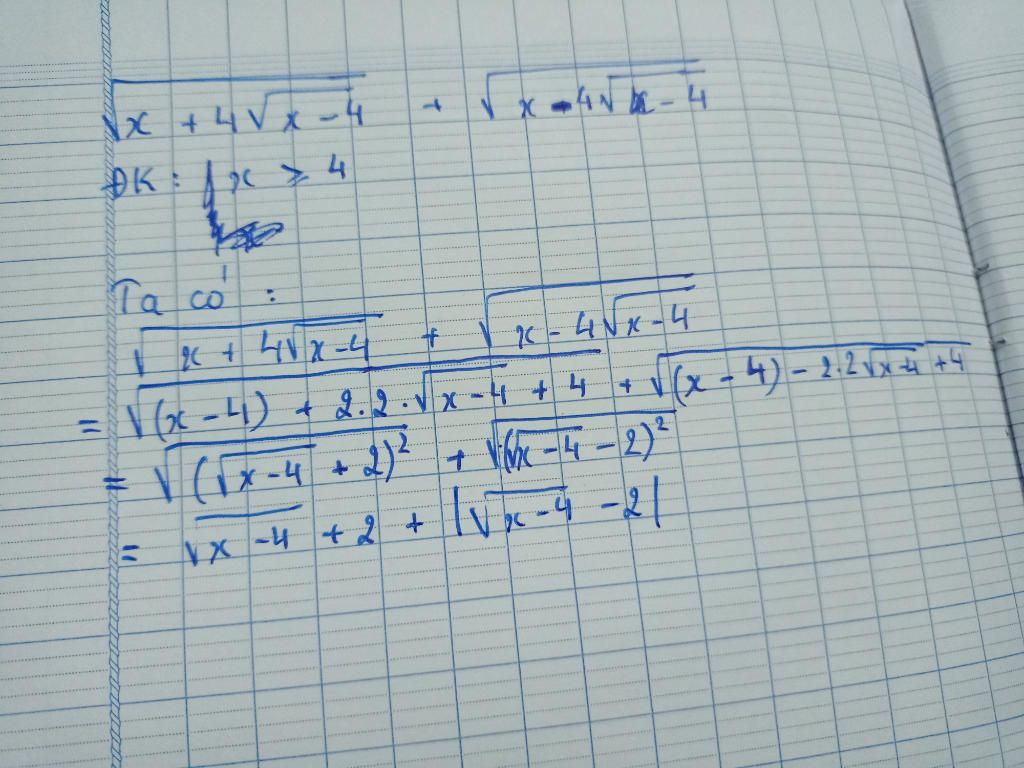 √(x + 4√(x-4)) + √(x - 4√(x-4))
ĐK: { x ⩾ 4
Ta có :
√(x + 4√(x-4)) + √(x - 4√(x-4))
= √((x-4) + 2.2.√(x-4) + 4) + √((x-4) - 2.2√(x-4) + 4)
= √((√(x-4) + 2)²) + √((√(x-4) - 2)²)
= √(x-4) + 2 + |√(x-4) - 2|